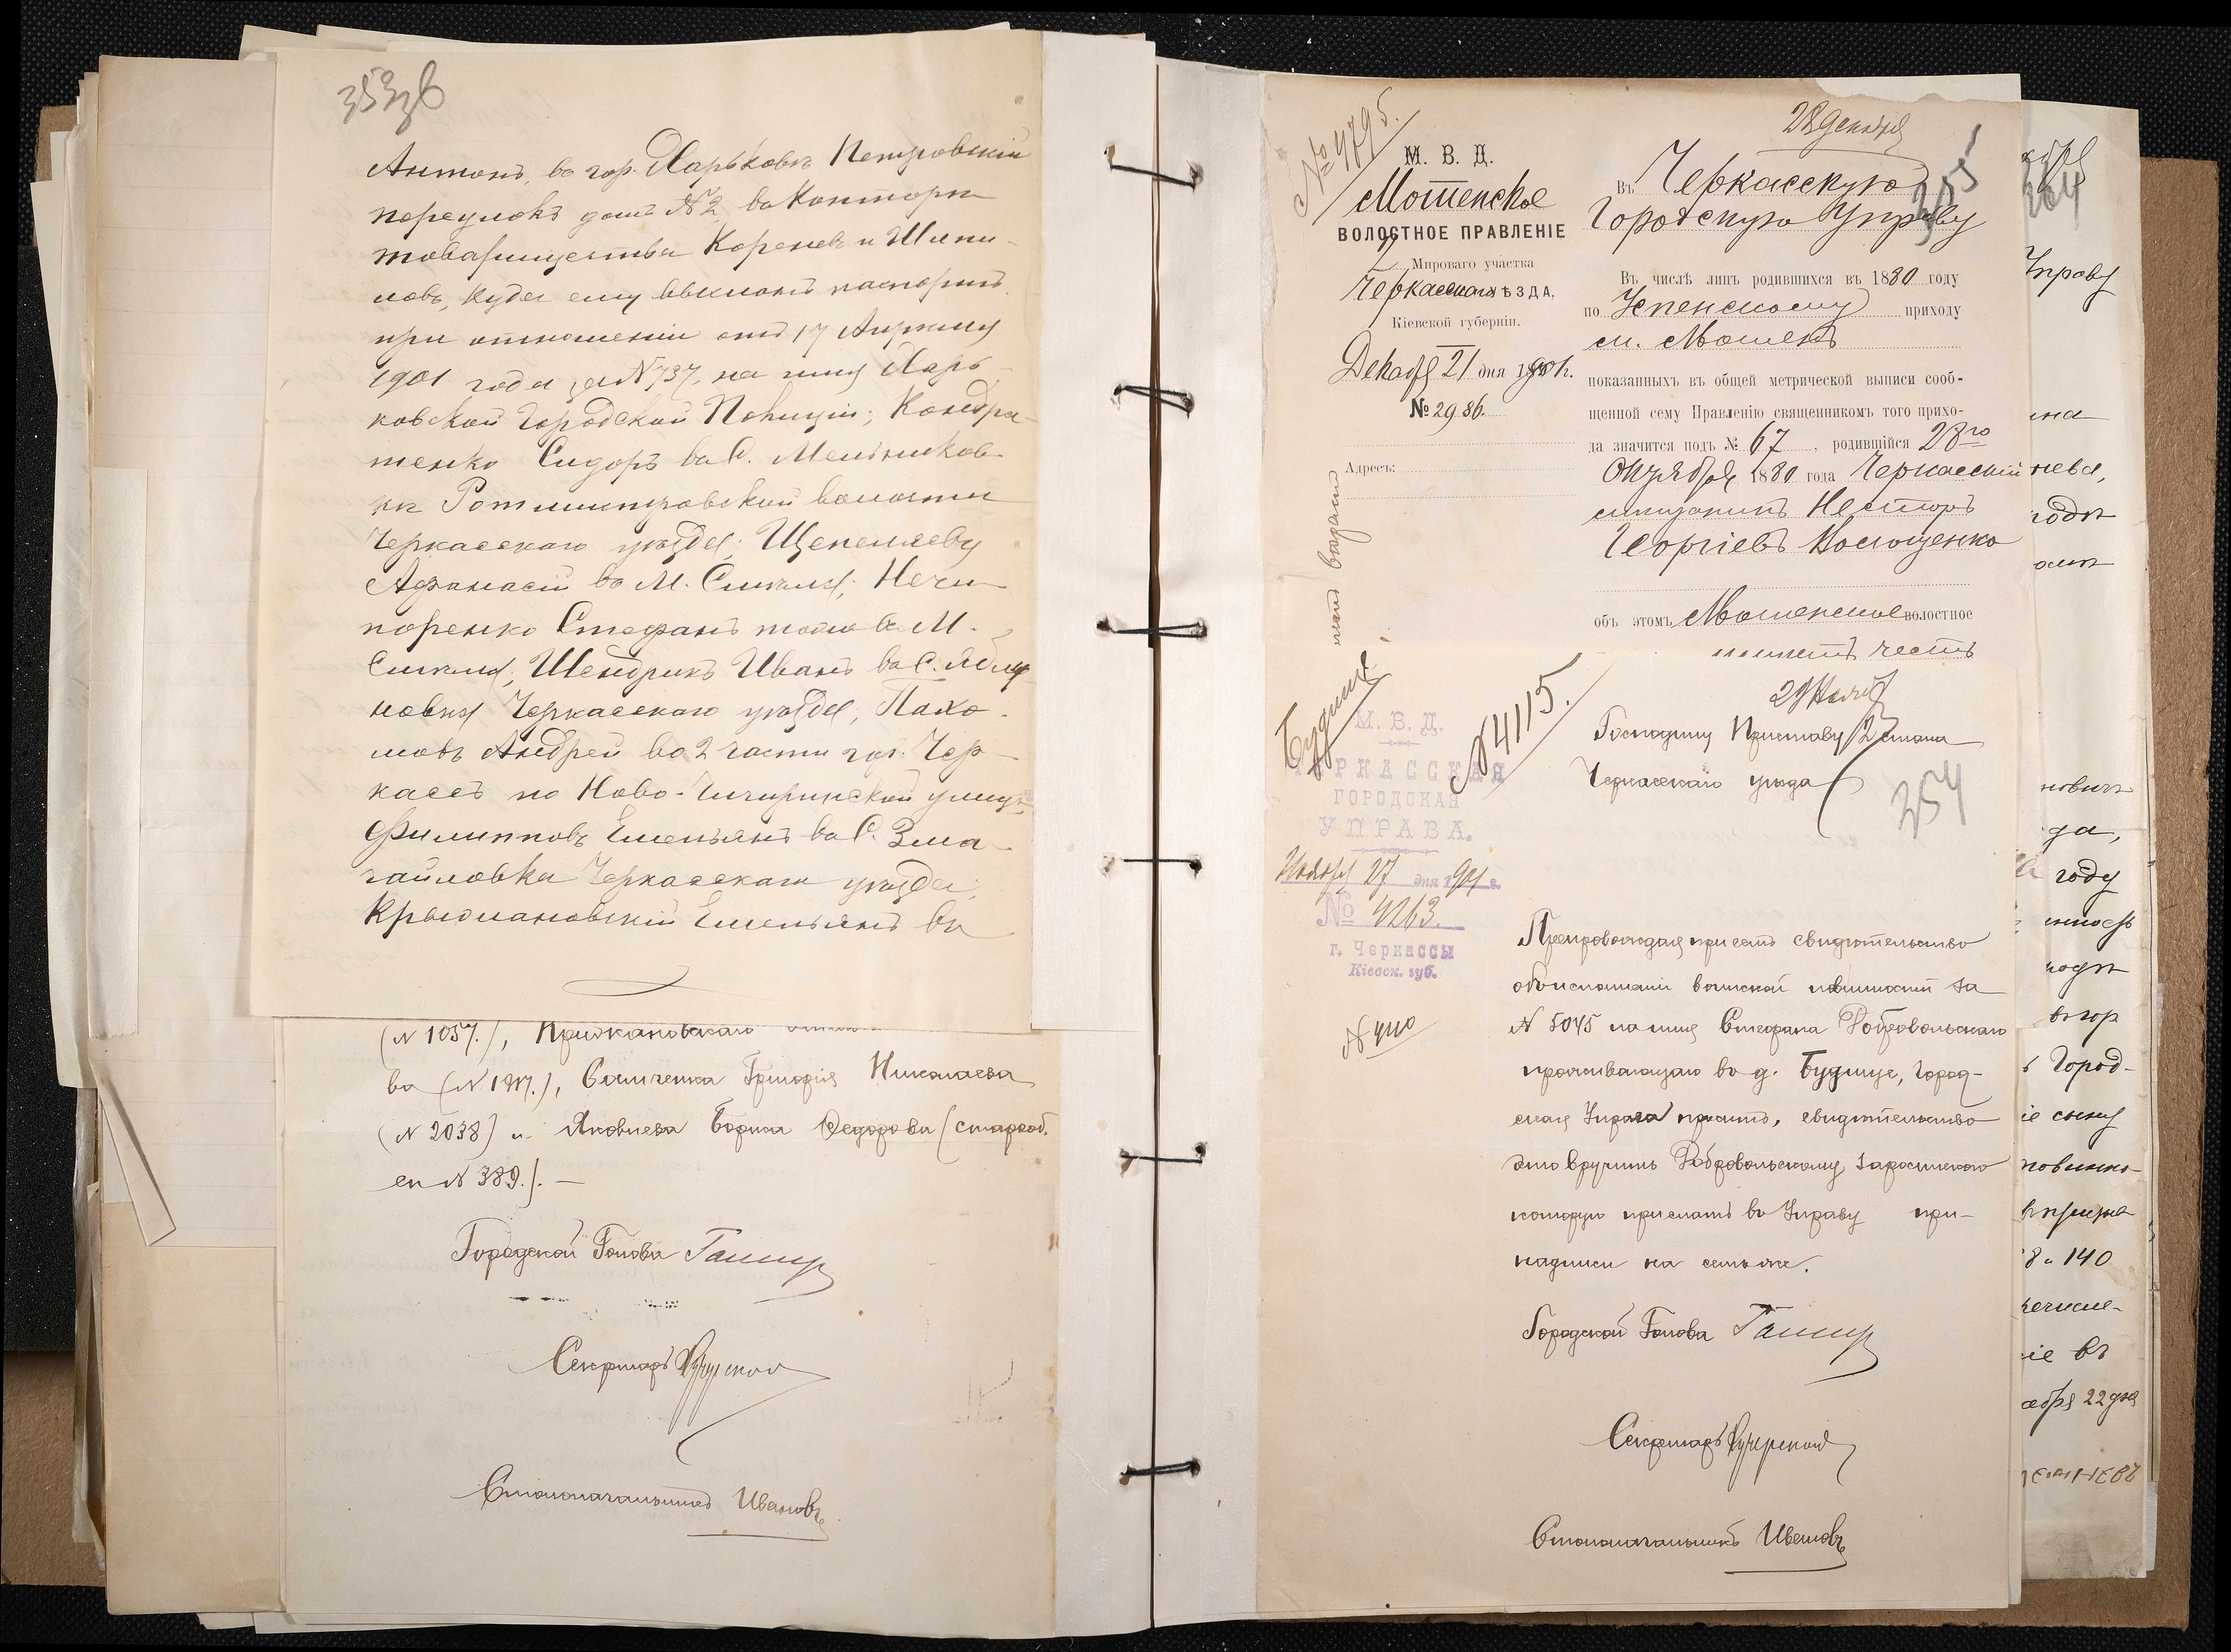 353 об
Антонъ, въ гор. Харьковѣ Петровскій
переулокъ домъ №2 въ Конторѣ
товарищества Кореневъ и Шипи-
ловъ, куда ему высланъ паспортъ
при отношеніи отъ 17 Апрѣля
1901 года за №737, на имя Харь-
ковской Городской Полиціи; Кондра-
тенко Сидоръ въ С. Мельников-
кѣ Ротмистровской волости
Черкасскаго уѣзда; Щепеляеву
Афанасій въ М. Смѣла; Нечи-
поренко Стефанъ тоже въ М.
Смѣла; Шендрикъ Иванъ въ С. Яблу-
новка Черкасскаго уѣзда; Пахо-
мовъ Андрей во 2 части гор. Чер-
кассъ по Ново-Чигиринской улицѣ
Филипповъ Емельянъ въ С. Зма-
гайловка Черкасскаго уѣзда;
Крыжановскій Емельянъ въ
(№ 1057.), Крижановскаго
ва (№ 1917.), Григорія Николаева
(№ 2038) и Яковлева Бориса Федорова (старооб.
ск № 389.). —
Городской Голова
Секретарь
Столоначальникъ Ивановъ
№ 4795.
28 декабря
М. В. Д.
Мошенское
ВОЛОСТНОЕ ПРАВЛЕНІЕ
2 Мироваго участка
Черкасскаго ѢЗДА,
Кіевской губерніи.
Декабря 21 дня 1901 г.
№ 2986.
Адресъ:
355
Въ Черкасскую
Городскую Управу
Въ числѣ лицъ родившихся въ 1880 году
по Успенскому приходу
м. Мошенъ
показанныхъ въ общей метрической выписи сооб-
щенной сему Правленію священникомъ того прихо-
да значится подъ № 67, родившійся 28го
Октября 1880 года Черкасскій
мѣщанинъ Несторъ
Георгіевъ
объ этомъ Мошенское волостное
имѣетъ честь
Будище
№ 4115.
М. В. Д.
ЧЕРКАССКАЯ
ГОРОДСКАЯ
УПРАВА.
Ноября 27 дня 1901 г.
№ 4263.
г. Черкассы
Кіевск. губ.
29 Ноября
Господину Приставу 2 стана
Черкасскаго уѣзда
354
Препровождая при семъ свидѣтельство
объ исполненіи воинской повинности за
№ 5045 на имя Стефана Добровольскаго
проживающаго въ д. Будище, Город-
ская Управа проситъ, свидѣтельство
это вручить Добровольскому, росписку
которую прислать въ Управу при-
надписи на семъ же.
Городской Голова
Секретарь
Столоначальникъ Ивановъ
Управу
году
Город-
8 и 140
ie въ
22 дня